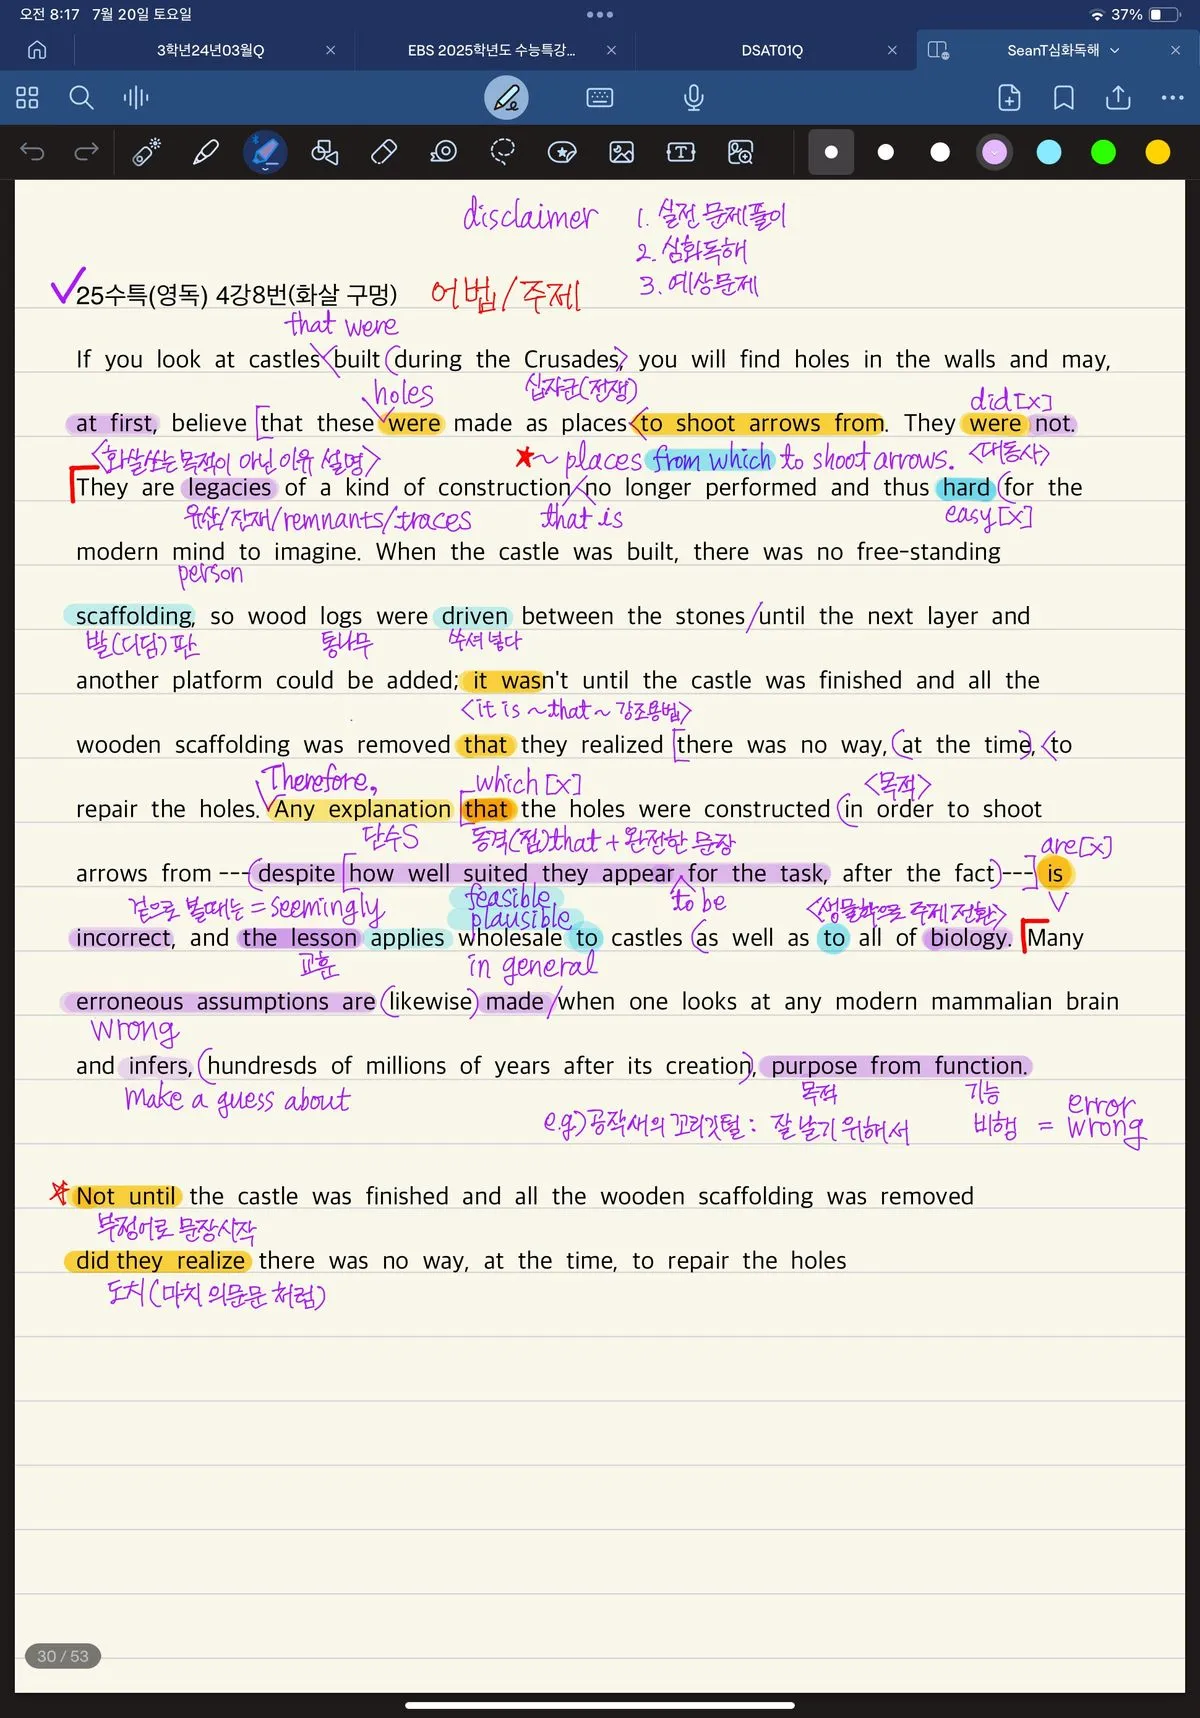 오전 8:17 7월 20일 토요일
37%
3학년24년03월Q
EBS 2025학년도 수능특강...
DSAT01Q
SeanT심화독해
disclaimer 1. 실전 문제풀이
2. 심화독해
3. 예상문제
25수특(영독) 4강8번(화살 구멍) 어법/주제
that were
If you look at castles built (during the Crusades, you will find holes in the walls and may,
holes 십자군(전쟁) did[x]
at first, believe [that these were made as places <to shoot arrows from. They were not.
<화살쏘는 목적이 아닌 이유 설명> ~ places from which to shoot arrows. <대동사>
They are legacies of a kind of construction no longer performed and thus hard (for the
유산/잔재/remnants/traces that is easy[x]
modern mind to imagine. When the castle was built, there was no free-standing
person
scaffolding, so wood logs were driven between the stones/until the next layer and
발(디딤)판 통나무 쑤셔 넣다
another platform could be added; it wasn't until the castle was finished and all the
<it is ~ that ~ 강조용법>
wooden scaffolding was removed that they realized [there was no way, (at the time), <to
Therefore, which [x] <목적>
repair the holes. Any explanation [that the holes were constructed (in order to shoot
단수S 동격(접)that + 완전한 문장 are[x]
arrows from ---(despite [how well suited they appear for the task, after the fact)---] is
겉으로 볼때는 = seemingly feasible to be <생물학으로 주제 전환>
plausible
incorrect, and the lesson applies wholesale to castles (as well as to all of biology. Many
교훈 in general
erroneous assumptions are (likewise) made/when one looks at any modern mammalian brain
wrong
and infers, (hundresds of millions of years after its creation), purpose from function.
make a guess about 목적 기능 error
e.g) 공작새의 꼬리깃털 : 잘 날기 위해서 비행 = wrong
Not until the castle was finished and all the wooden scaffolding was removed
부정어로 문장시작
did they realize there was no way, at the time, to repair the holes
도치(마치 의문문 처럼)
30 / 53